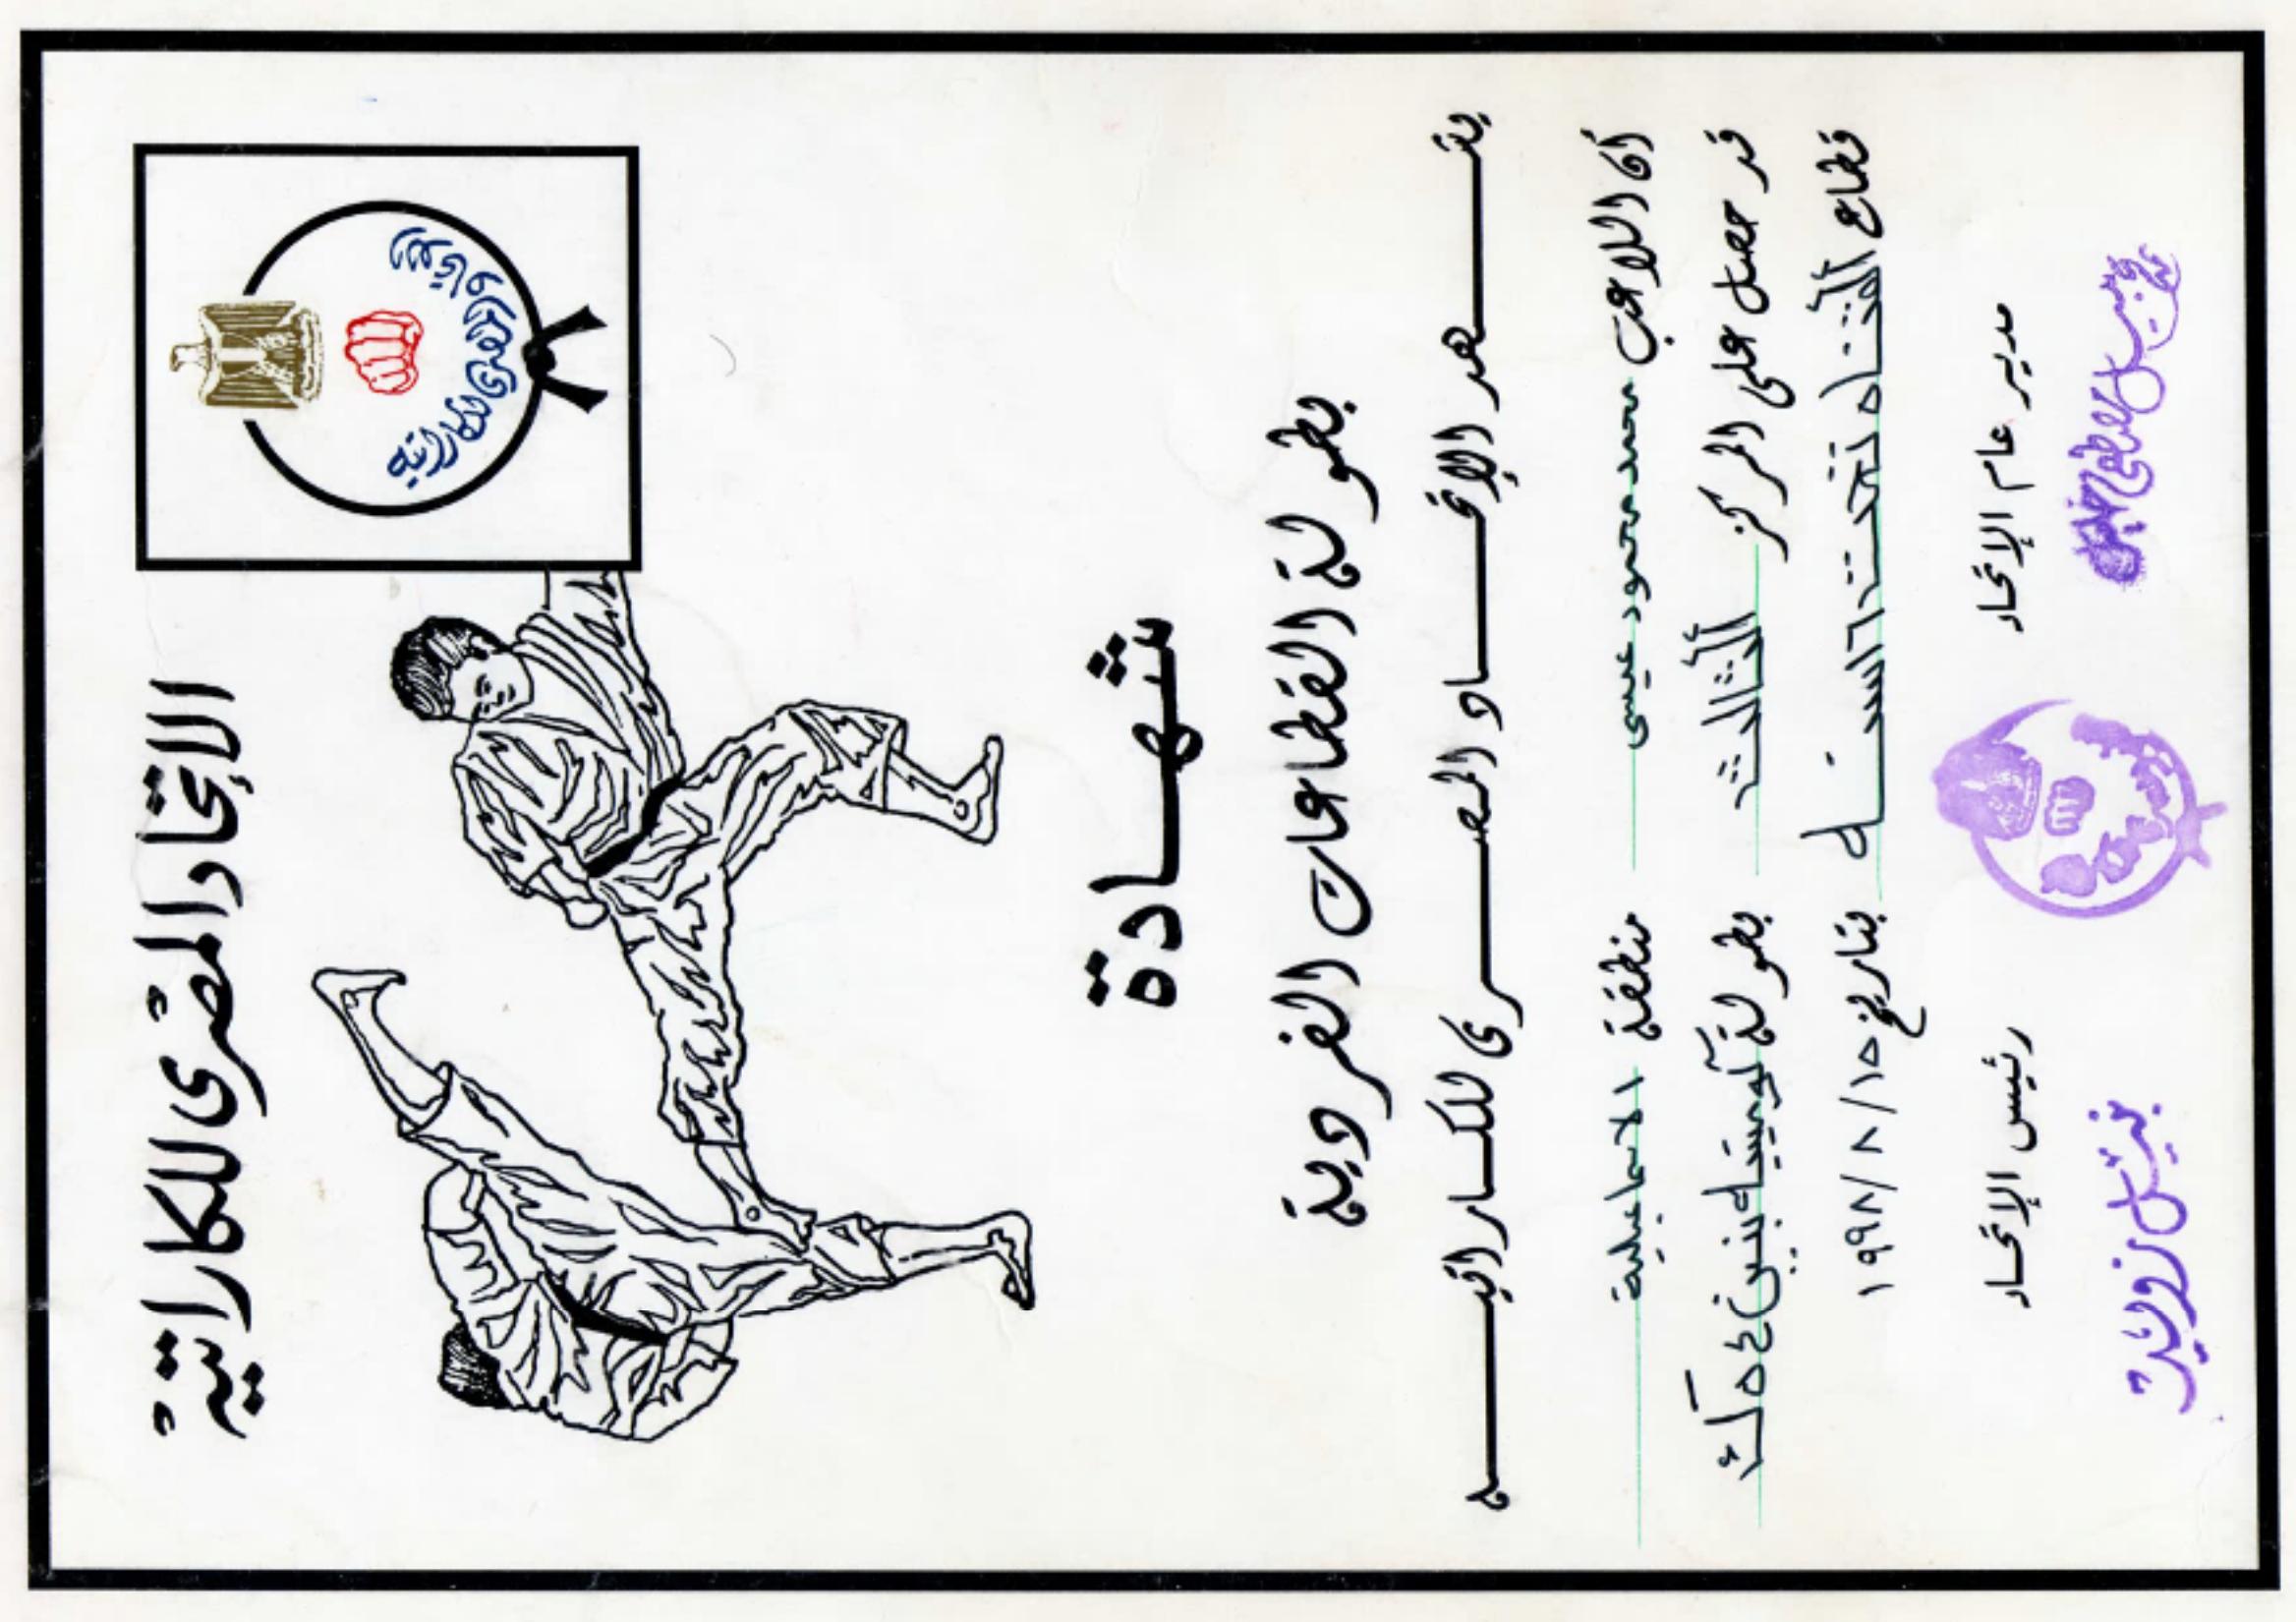 الاتحاد المصرى للكاراتيه
الاتحاد المصرى للكاراتيه
شهادة
بطولة القطاعات الفردية
يشهد الإتحاد المصرى للكاراتيه
أن اللاعب محمد محمود عيسى منطقة الاسماعيلية
قد حصل على المركز الثالث بطولة كوميتيه بنين ٥٤ ك
قطاع القناه تحت ١٦ سنه بتاريخ ١٥/٨/١٩٩٨
مدير عام الإتحاد رئيس الإتحاد
نبيل مصطفى خليل